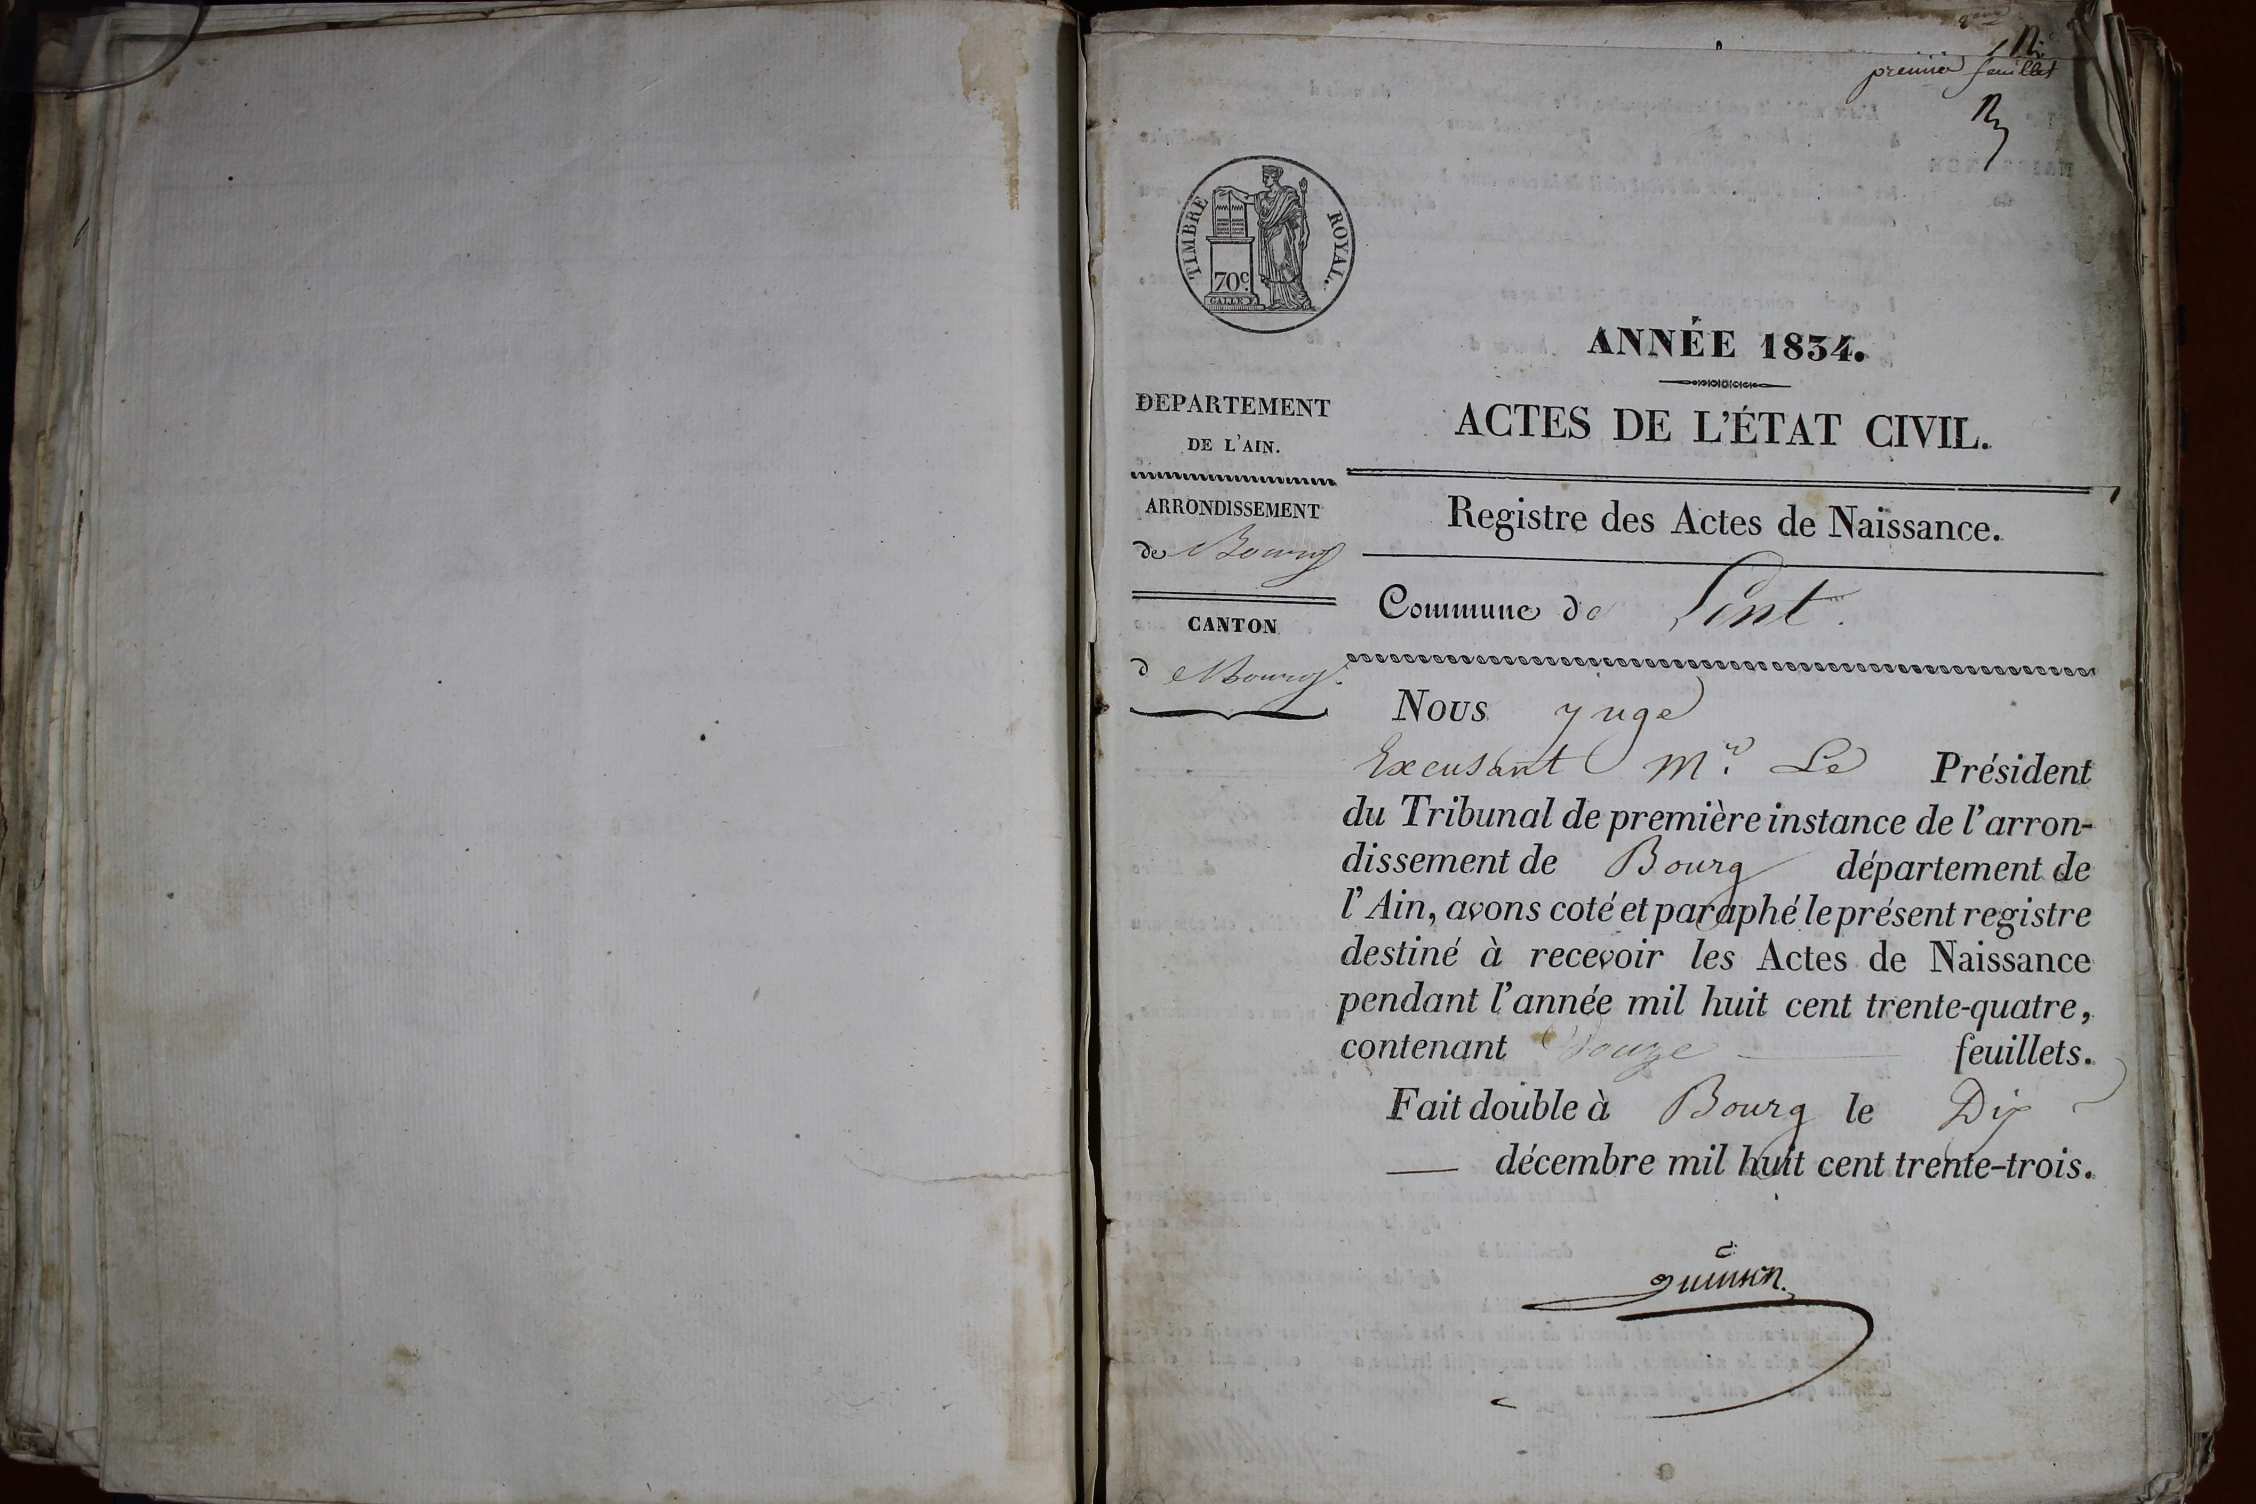 premier feuillet
TIMBRE ROYAL.
70c.
ANNÉE 1834.
DEPARTEMENT
DE L'AIN.
ACTES DE L'ÉTAT CIVIL.
ARRONDISSEMENT
de Bourg
Registre des Actes de Naissance.
CANTON
d e Bourg.
Commune de Lent.
Nous juge
Excusant Mr. Le Président
du Tribunal de première instance de l'arron-
dissement de Bourg département de
l'Ain, avons coté et paraphé le présent registre
destiné à recevoir les Actes de Naissance
pendant l'année mil huit cent trente-quatre,
contenant Douze feuillets.
Fait double à Bourg le Dix
décembre mil huit cent trente-trois.